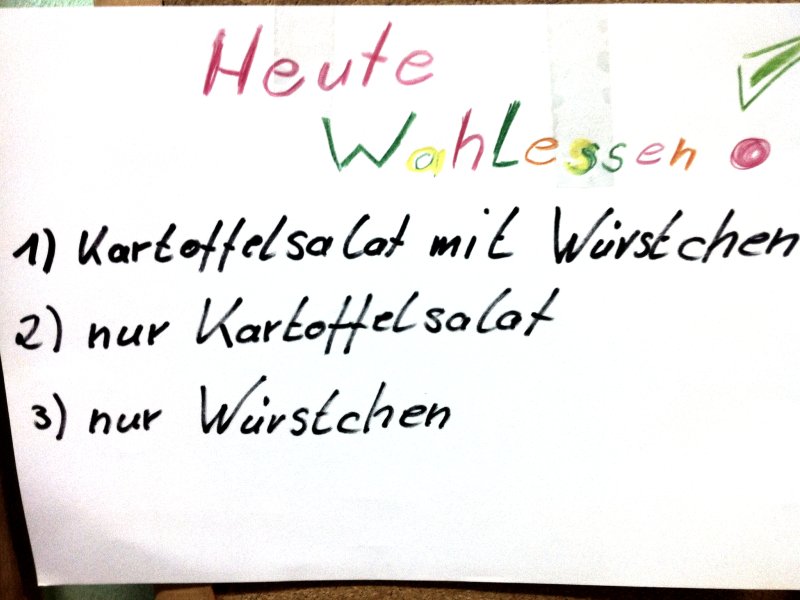 Heute
Wahlessen
1) Kartoffelsalat mit Würstchen
2) nur Kartoffelsalat
3) nur Würstchen